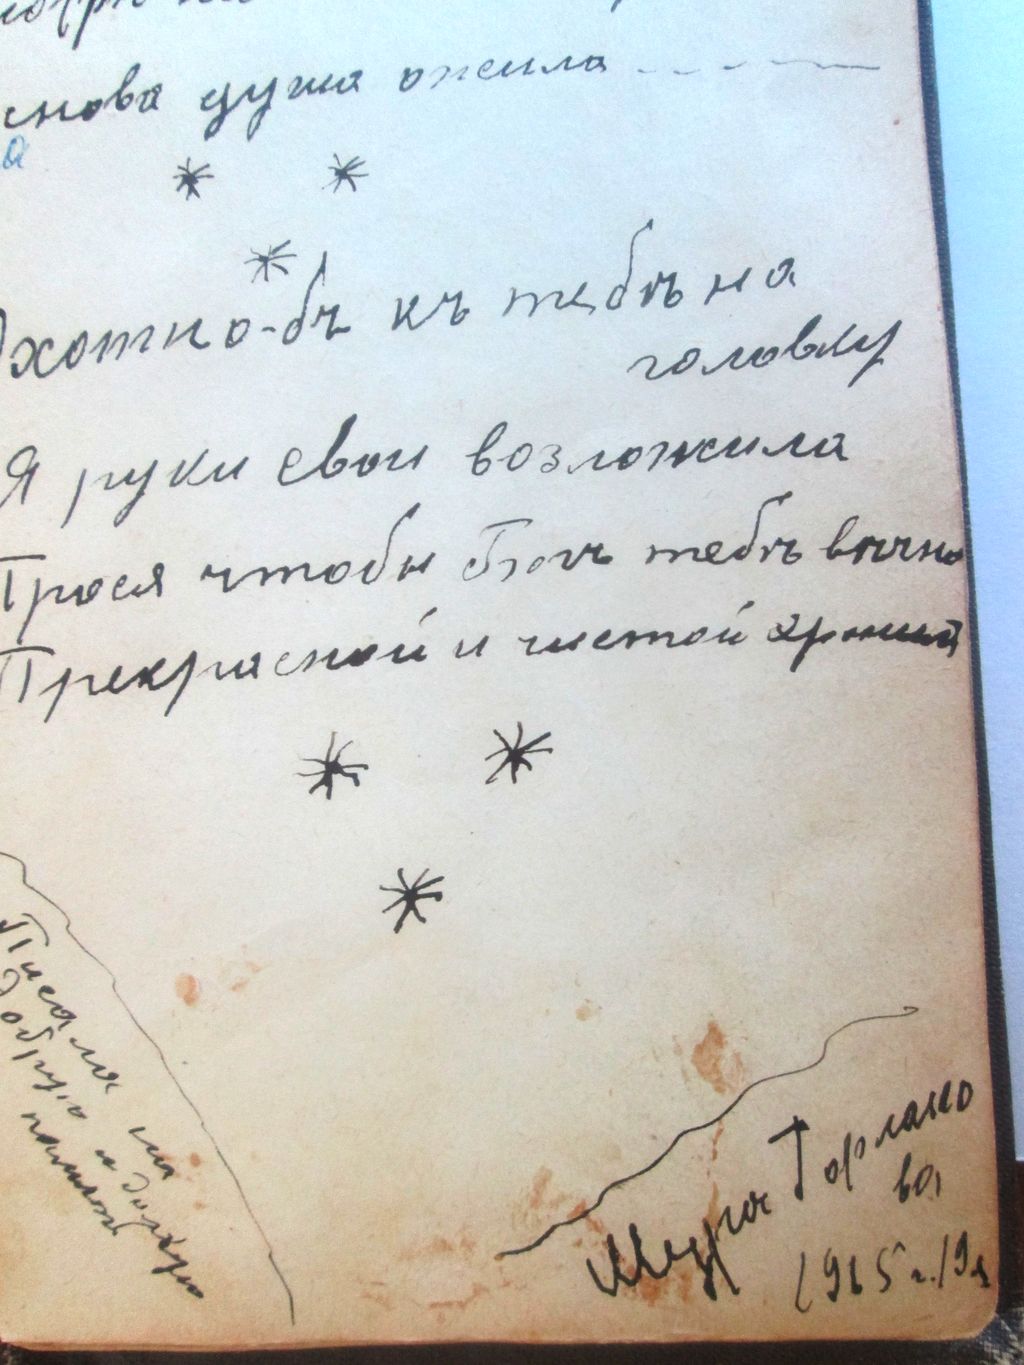 снова душа ожила
Охотно-бъ къ тебѣ на
головку
Я руки свои возложила
Прося чтобы Богъ тебѣ вѣчно
Прекрасной и чистой
Писала на
добрую и долгую
память
Мура Горлано
ва
1915 г.